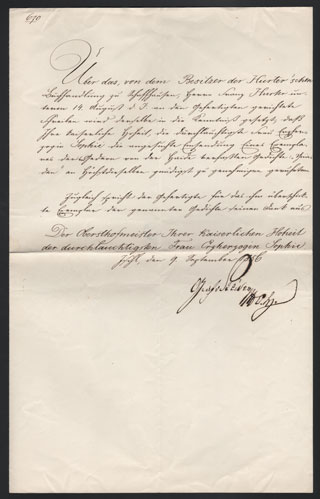 Über das, von dem Besitzer der Hurter'schen
Buchhandlung zu Schaffhausen, Herrn Franz Hurter un-
term 14. August d. J. an den Gefertigten gerichtete
Schreiben wird derselbe in die Kenntniß gesetzt, daß
Ihre kaiserliche Hoheit, die durchlauchtigste Frau Erzher-
zogin Sophie die angesuchte Einsendung Eines Exempla-
res der Gedern von der Heide verfaßten Gedichte
an Höchstdieselben gnädigst zu genehmigen geruhten.
Zugleich spricht der Gefertigte für das ihm überschick-
te Exemplar der genannten Gedichte seinen Dank aus.
Der Obersthofmeister Ihrer kaiserlichen Hoheit
der durchlauchtigsten Frau Erzherzogin Sophie
Ischl, den 9. September